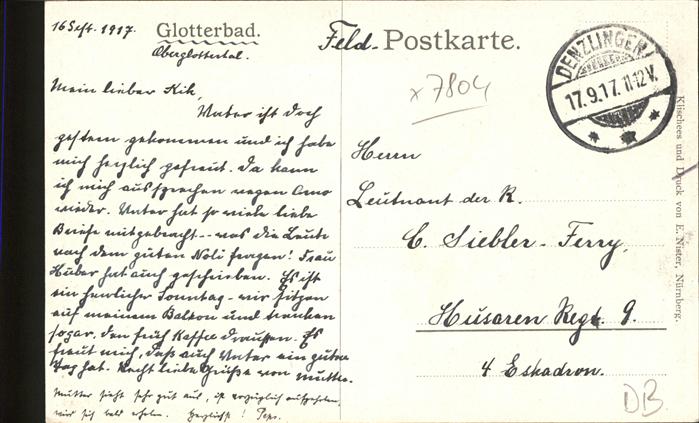 16 Sept. 1917. Glotterbad.
Oberglottertal.
Feld- Postkarte.
DENZLINGEN
17.9.17. 11-12 V.
x 7804
Mein lieber Kik,
Vater ist doch
gestern gekommen und ich habe
mich herzlich gefreut. Da kann
ich mich aussprechen wegen Arno
wieder. Vater hat so viele liebe
Briefe mitgebracht -- was die Leute
nach dem guten Noli fragen! Frau
Huber hat auch geschrieben. Es ist
ein herrlicher Sonntag - wir sitzen
auf meinem Balkon und tranken
sogar den früh Kaffee draußen. Es
freut mich, daß auch Vater ein guten
Tag hat. Recht liebe Grüße von Mutter.
Mutter sieht sehr gut aus, ist vorzüglich aufgehoben,
wir sich bald erholen. Herzlichst! Papa.
Herrn
Leutnant der R.
C. Siebler-Ferry,
Husaren Regt. 9.
4 Eskadron.
DB
Klischees und Druck von E. Nister, Nürnberg.